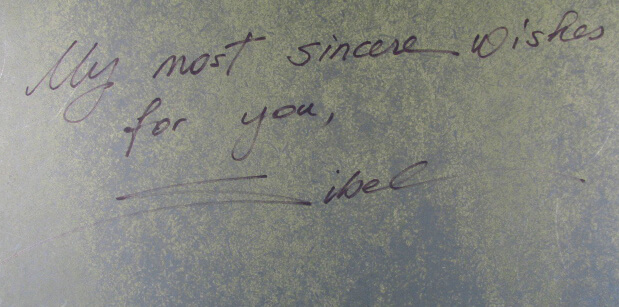 My most sincere wishes
for you,
Sibel